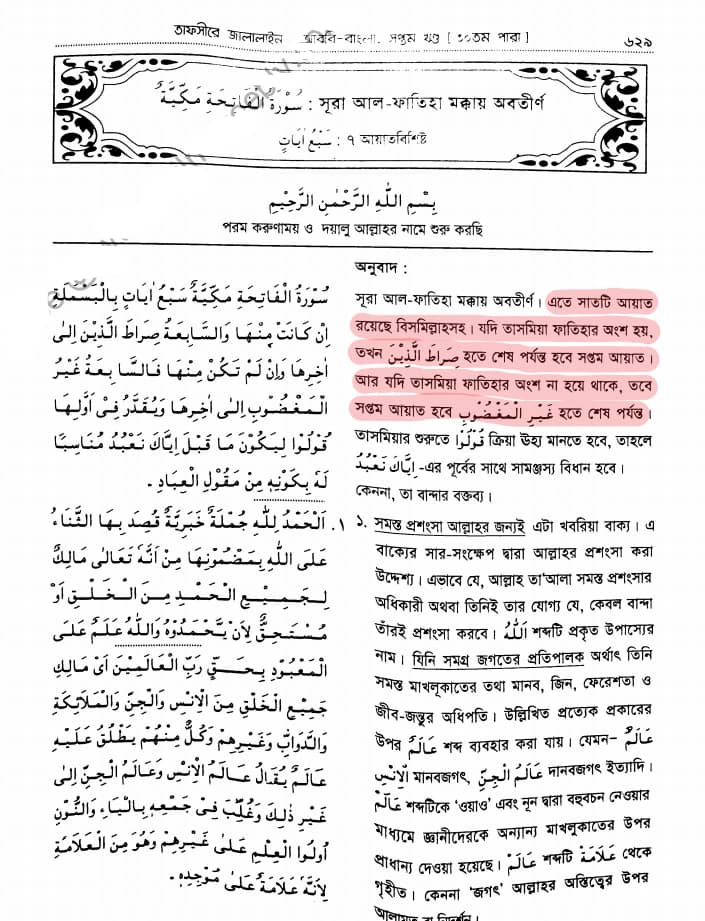 তাফসীরে জালালাইন আরবি-বাংলা, সপ্তম খণ্ড [ ৩০তম পারা ] ৬২৯
سُوْرَةُ الْفَاتِحَةِ مَكِّيَّةٌ : সূরা আল-ফাতিহা মক্কায় অবতীর্ণ
سَبْعُ اٰيَاتٍ : ৭ আয়াতবিশিষ্ট
بِسْمِ اللّٰهِ الرَّحْمٰنِ الرَّحِيْمِ
পরম করুণাময় ও দয়ালু আল্লাহর নামে শুরু করছি
سُوْرَةُ الْفَاتِحَةِ مَكِّيَّةٌ سَبْعُ اٰيَاتٍ بِالْبَسْمَلَةِ
اِنْ كَانَتْ مِنْهَا وَالسَّابِعَةُ صِرَاطَ الَّذِيْنَ اِلٰى
اٰخِرِهَا وَاِنْ لَمْ تَكُنْ مِنْهَا فَالسَّابِعَةُ غَيْرِ
الْمَغْضُوْبِ اِلٰى اٰخِرِهَا وَيُقَدَّرُ فِىْ اَوَّلِهَا
قُوْلُوْا لِيَكُوْنَ مَا قَبْلَ اِيَّاكَ نَعْبُدُ مُنَاسِبًا
لَهُ بِكَوْنِهٖ مِنْ مَقُوْلِ الْعِبَادِ .
١. اَلْحَمْدُ لِلّٰهِ جُمْلَةٌ خَبَرِيَّةٌ قُصِدَ بِهَا الثَّنَاءُ
عَلَى اللّٰهِ بِمَضْمُوْنِهَا مِنْ اَنَّهُ تَعَالٰى مَالِكٌ
لِجَمِيْعِ الْحَمْدِ مِنَ الْخَلْقِ اَوْ
مُسْتَحِقٌّ لِاَنْ يَّحْمَدُوْهُ وَاللّٰهُ عَلَمٌ عَلَى
الْمَعْبُوْدِ بِحَقٍّ رَبِّ الْعَالَمِيْنَ اَىْ مَالِكِ
جَمِيْعِ الْخَلْقِ مِنَ الْاِنْسِ وَالْجِنِّ وَالْمَلَائِكَةِ
وَالدَّوَابِّ وَغَيْرِهِمْ وَكُلٌّ مِنْهُمْ يُطْلَقُ عَلَيْهِ
عَالَمٌ يُقَالُ عَالَمُ الْاِنْسِ وَعَالَمُ الْجِنِّ اِلٰى
غَيْرِ ذٰلِكَ وَغُلِّبَ فِىْ جَمْعِهٖ بِالْيَاءِ وَالنُّوْنِ
اُولُوا الْعِلْمِ عَلٰى غَيْرِهِمْ وَهُوَ مِنَ الْعَلَامَةِ
لِاَنَّهُ عَلَامَةٌ عَلٰى مُوْجِدِهٖ .
অনুবাদ :
সূরা আল-ফাতিহা মক্কায় অবতীর্ণ। এতে সাতটি আয়াত
রয়েছে বিসমিল্লাহসহ। যদি তাসমিয়া ফাতিহার অংশ হয়,
তখন صِرَاطَ الَّذِيْنَ হতে শেষ পর্যন্ত হবে সপ্তম আয়াত।
আর যদি তাসমিয়া ফাতিহার অংশ না হয়ে থাকে, তবে
সপ্তম আয়াত হবে غَيْرِ الْمَغْضُوْبِ হতে শেষ পর্যন্ত।
তাসমিয়ার শুরুতে قُوْلُوْا ক্রিয়া ঊহ্য মানতে হবে, তাহলে
اِيَّاكَ نَعْبُدُ -এর পূর্বের সাথে সামঞ্জস্য বিধান হবে।
কেননা, তা বান্দার বক্তব্য।
১. সমস্ত প্রশংসা আল্লাহর জন্যই এটা খবরিয়া বাক্য। এ
বাক্যের সার-সংক্ষেপ দ্বারা আল্লাহর প্রশংসা করা
উদ্দেশ্য। এভাবে যে, আল্লাহ তা'আলা সমস্ত প্রশংসার
অধিকারী অথবা তিনিই তার যোগ্য যে, কেবল বান্দা
তাঁরই প্রশংসা করবে। اَللّٰهُ শব্দটি প্রকৃত উপাস্যের
নাম। যিনি সমগ্র জগতের প্রতিপালক অর্থাৎ তিনি
সমস্ত মাখলূকাতের তথা মানব, জিন, ফেরেশতা ও
জীব-জন্তুর অধিপতি। উল্লিখিত প্রত্যেক প্রকারের
উপর عَالَمٌ শব্দ ব্যবহার করা যায়। যেমন– عَالَمُ
الْاِنْسِ মানবজগৎ, عَالَمُ الْجِنِّ দানবজগৎ ইত্যাদি।
عَالَمٌ শব্দটিকে 'ওয়াও' এবং নূন দ্বারা বহুবচন নেওয়ার
মাধ্যমে জ্ঞানীদেরকে অন্যান্য মাখলূকাতের উপর
প্রাধান্য দেওয়া হয়েছে। عَالَمٌ শব্দটি عَلَامَةٌ থেকে
গৃহীত। কেননা 'জগৎ' আল্লাহর অস্তিত্বের উপর
আলামত বা নিদর্শন।